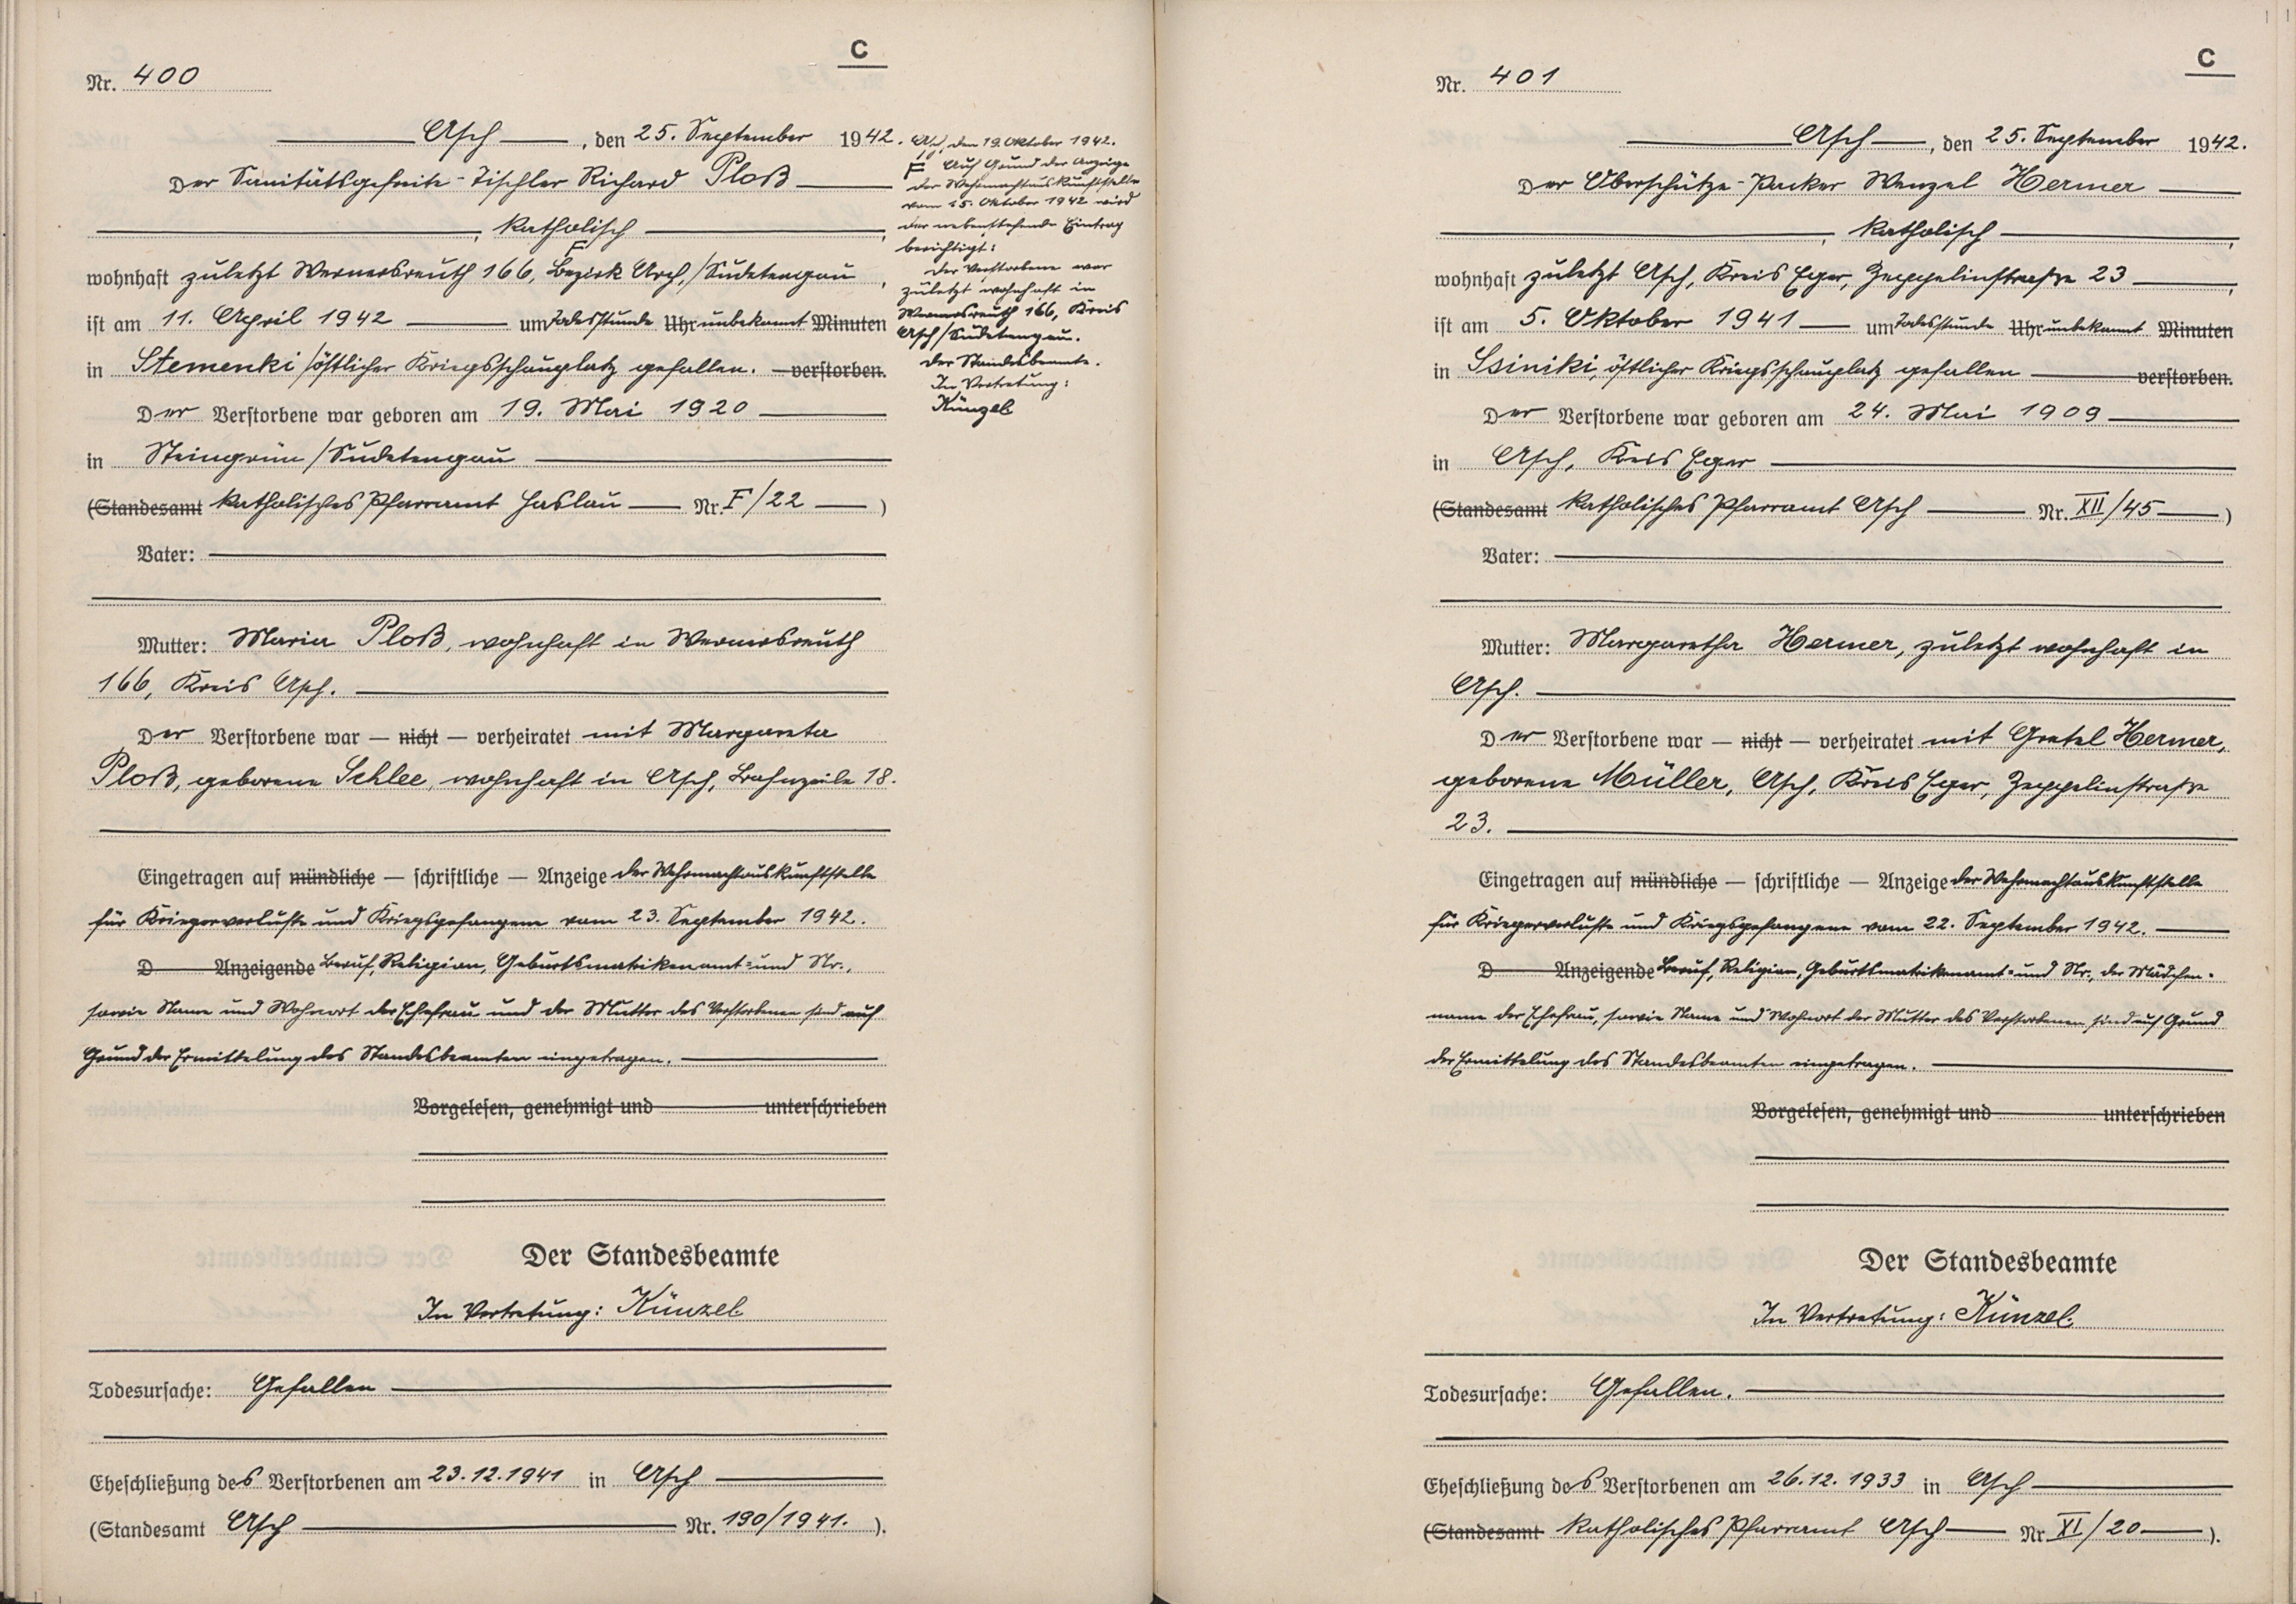 C
Nr. 400
Asch, den 25. September 1942.
Der Sanitätsgefreite-Tischler Richard Ploß
, katholisch ,
wohnhaft zuletzt Wernersreuth 166, Bezirk Asch,/Sudetengau ,
ist am 11. April 1942 um Todesstunde Uhr unbekannt Minuten
in Stemenki/östlicher Kriegsschauplatz gefallen. verstorben.
Der Verstorbene war geboren am 19. Mai 1920
in Steingrün/Sudetengau
(Standesamt katholisches Pfarramt Haslau Nr. F/22 )
Vater:
Mutter: Maria Ploß, wohnhaft in Wernersreuth
166, Kreis Asch.
Der Verstorbene war — nicht — verheiratet mit Margareta
Ploß, geborene Schlee, wohnhaft in Asch, Bahnzeile 18.
Eingetragen auf mündliche — schriftliche — Anzeige der Wehrmachtauskunftstelle
für Kriegerverluste und Kriegsgefangene vom 23. September 1942.
D Anzeigende Beruf, Religion, Geburtsmatrikenamt- und Nr.,
sowie Name und Wohnort der Ehefrau und der Mutter des Verstorbenen sind auf
Grund der Ermittelung des Standesbeamten eingetragen.
Vorgelesen, genehmigt und unterschrieben
Der Standesbeamte
In Vertretung: Künzel.
Todesursache: Gefallen
Eheschließung des Verstorbenen am 23.12.1941 in Asch
(Standesamt Asch Nr. 190/1941. ).
Asch, den 19. Oktober 1942.
F Auf Grund der Anzeige
der Wehrmachtauskunftstelle
vom 15. Oktober 1942 wird
der nebenstehende Eintrag
berichtigt:
Der Verstorbene war
zuletzt wohnhaft in
Wernersreuth 166, Kreis
Asch/Sudetengau.
Der Standesbeamte.
In Vertretung:
Künzel
C
Nr. 401
Asch, den 25. September 1942.
Der Oberschütze-Packer Wenzel Hermer
, katholisch ,
wohnhaft zuletzt Asch, Kreis Eger, Zeppelinstraße 23 ,
ist am 5. Oktober 1941 um Todesstunde Uhr unbekannt Minuten
in Ssiniki, östlicher Kriegsschauplatz gefallen verstorben.
Der Verstorbene war geboren am 24. Mai 1909
in Asch, Kreis Eger
(Standesamt katholisches Pfarramt Asch Nr. XII/45 )
Vater:
Mutter: Margaretha Hermer, zuletzt wohnhaft in
Asch.
Der Verstorbene war — nicht — verheiratet mit Gretel Hermer,
geborene Müller, Asch, Kreis Eger, Zeppelinstraße
23.
Eingetragen auf mündliche — schriftliche — Anzeige der Wehrmachtauskunftstelle
für Kriegerverluste und Kriegsgefangene vom 22. September 1942.
D Anzeigende Beruf, Religion, Geburtsmatrikenamt- und Nr., der Mädchen-
name der Ehefrau, sowie Name und Wohnort der Mutter des Verstorbenen sind auf Grund
der Ermittelung des Standesbeamten eingetragen.
Vorgelesen, genehmigt und unterschrieben
Der Standesbeamte
In Vertretung: Künzel.
Todesursache: Gefallen.
Eheschließung des Verstorbenen am 26.12.1933 in Asch
(Standesamt katholisches Pfarramt Asch Nr. XI/20 ).